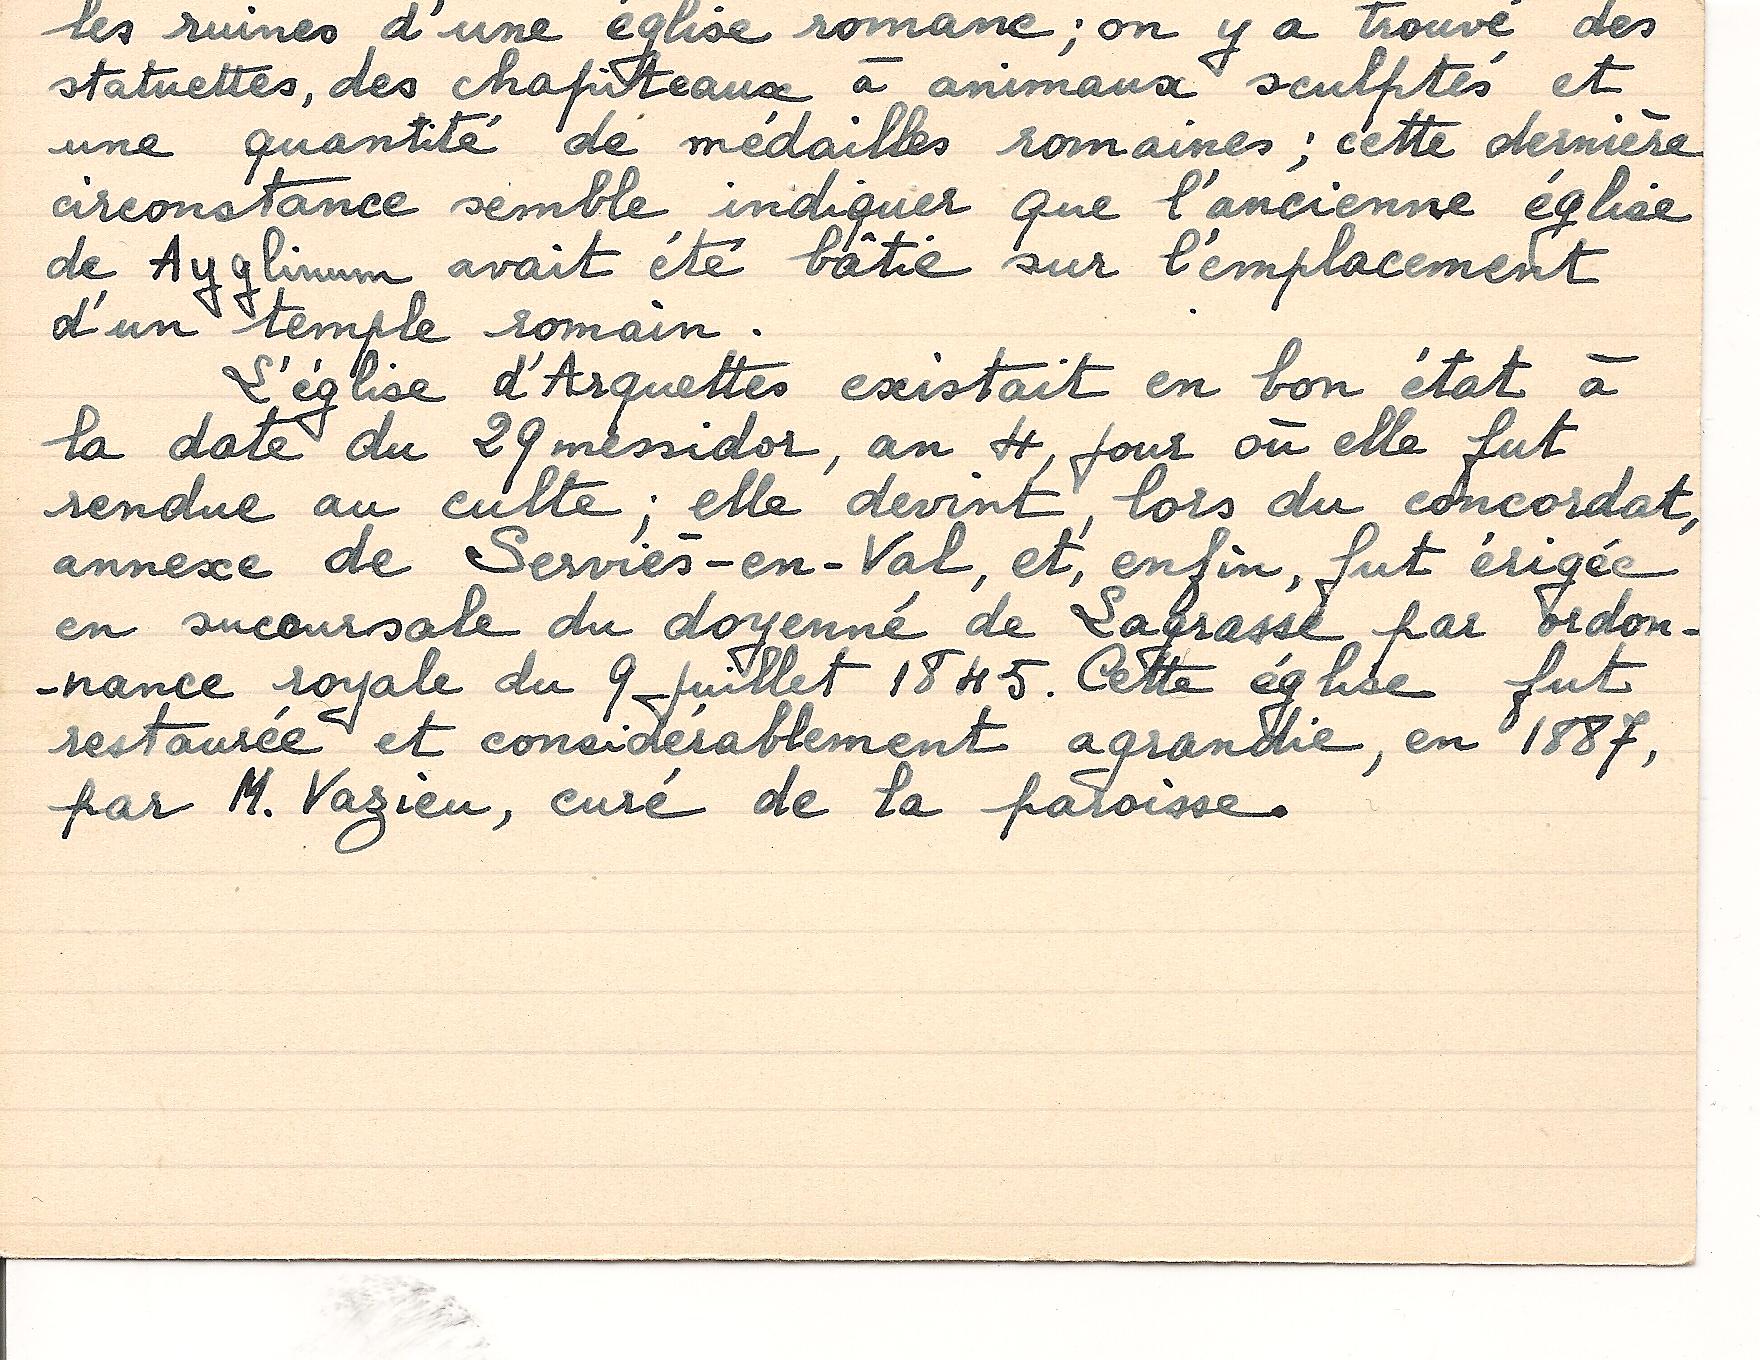 les ruines d'une église romane ; on y a trouvé des
statuettes, des chapiteaux à animaux sculptés et
une quantité de médailles romaines ; cette dernière
circonstance semble indiquer que l'ancienne église
de Ayglinum avait été bâtie sur l'emplacement
d'un temple romain .
L'église d'Arquettes existait en bon état à
la date du 29 messidor, an 4, jour où elle fut
rendue au culte ; elle devint, lors du concordat,
annexe de Serviès-en-Val, et, enfin, fut érigée
en succursale du doyenné de Lagrasse par ordon-
-nance royale du 9 juillet 1845. Cette église fut
restaurée et considérablement agrandie, en 1887,
par M. Vazieu, curé de la paroisse.